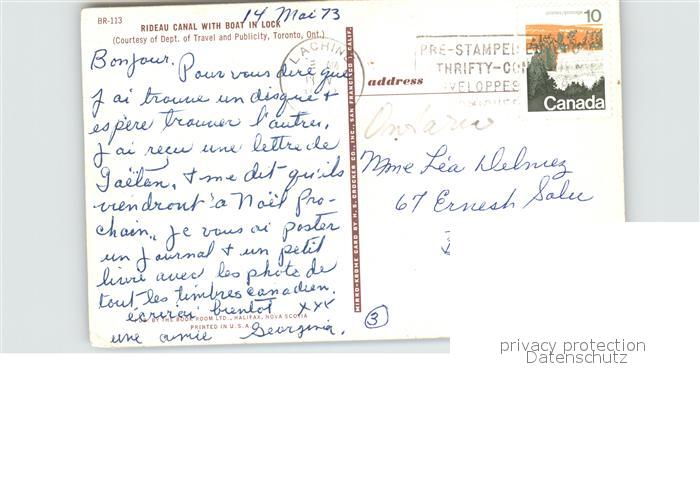 BR-113
14 Mai 73
RIDEAU CANAL WITH BOAT IN LOCK
(Courtesy of Dept. of Travel and Publicity, Toronto, Ont.)
Bonjour.
Pour vous dire que
j'ai trouvé un disque +
espère trouver l'autre.
J'ai reçu une lettre de
Gaëtan, + me dit qu'ils
viendront à Noël Pro-
chain., Je vous ai poster
un journal + un petit
livre avec les photo de
tout les timbres canadien.
écrirai bientôt xxx
une amie Georginia.
BY THE BOOK ROOM LTD., HALIFAX, NOVA SCOTIA
PRINTED IN U.S.A.
MIRRO-KROME CARD BY H. S. CROCKER CO., INC., SAN FRANCISCO, CALIF.
LACHINE
PRE-STAMPED
THRIFTY
VELOPPES
10
Canada
address
Ontario
Mme Léa Delmez
67 Ernesh
3
privacy protection
Datenschutz